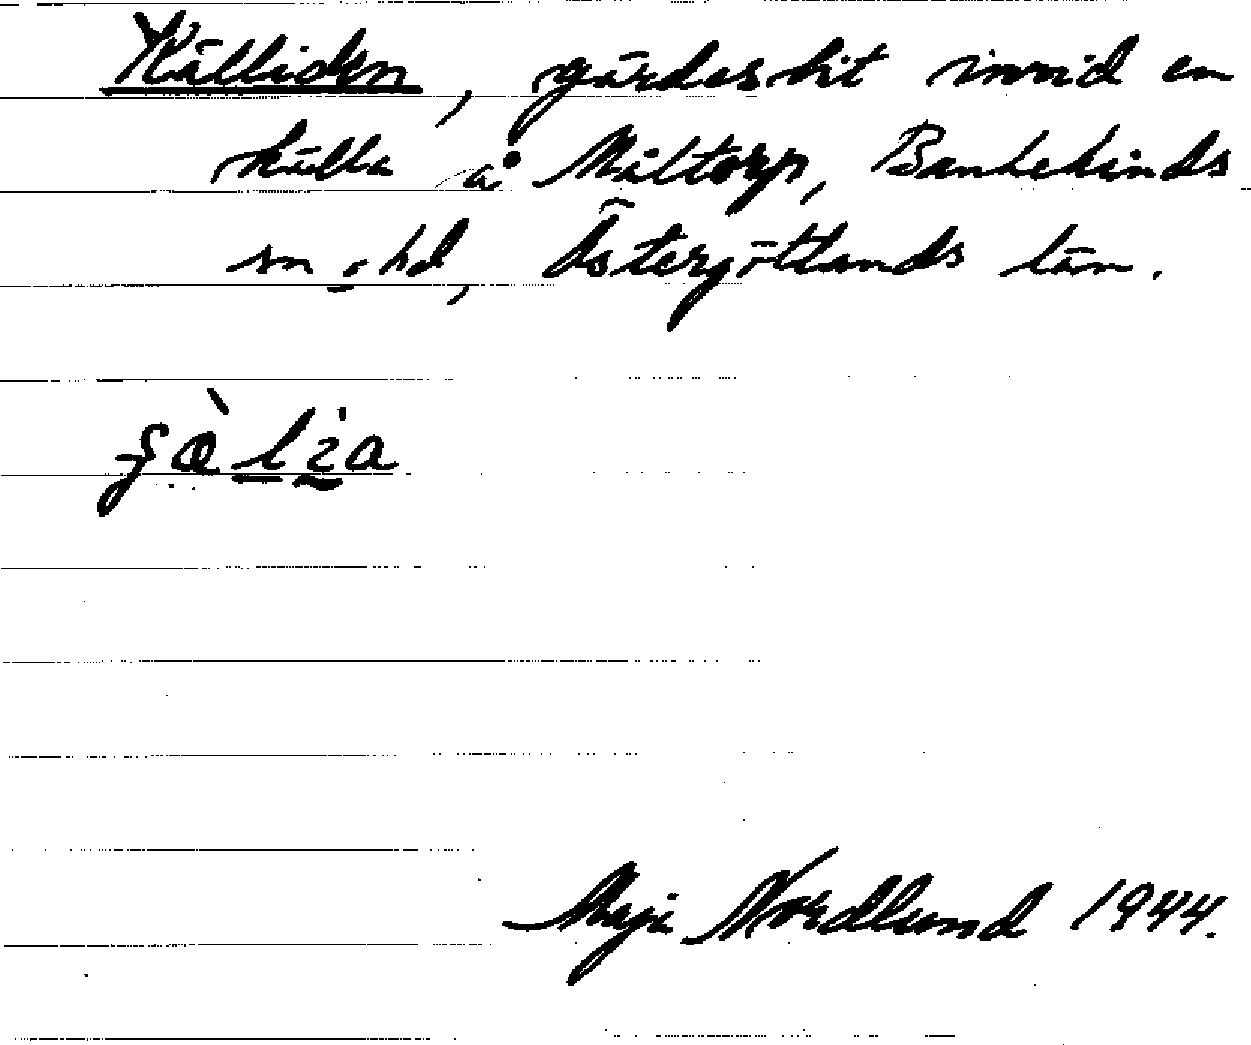 Källiden, gärdesbit invid en
källa å Måltorp, Bankekinds
sn o. hd, Östergötlands län.
Maja Nordlund 1944.